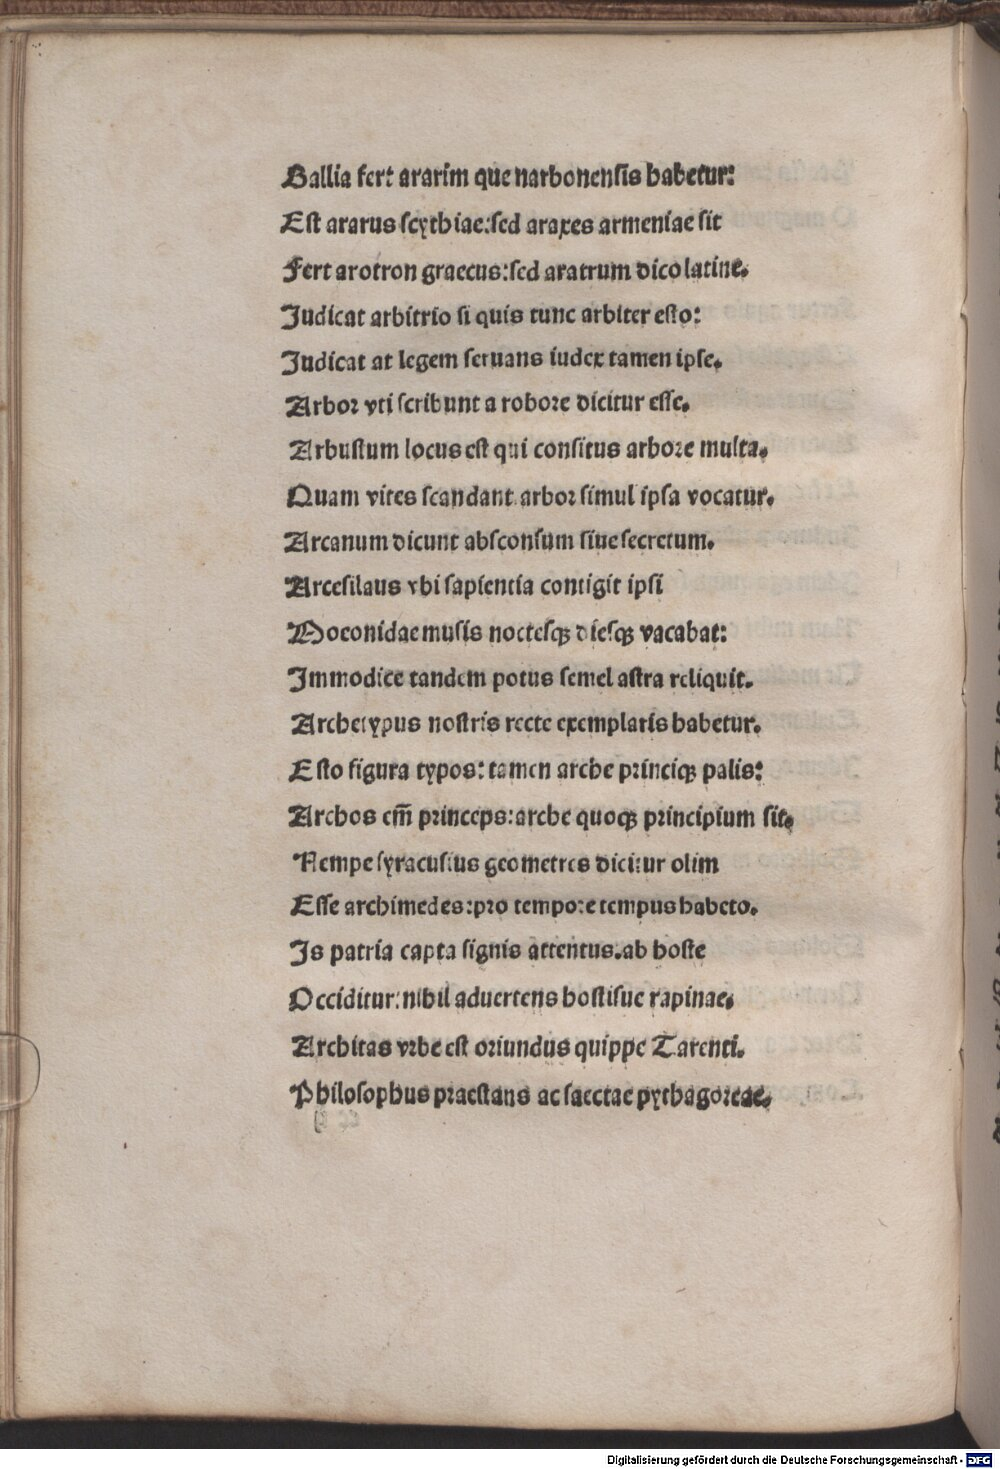 Gallia fert ararim que narbonensis habetur:
Est ararus scythiae: sed araxes armeniae sit
Fert arotron graecus: sed aratrum dico latine.
Judicat arbitrio si quis tunc arbiter esto:
Judicat at legem seruans iudex tamen ipse.
Arbor vti scribunt a robore dicitur esse.
Arbustum locus est qui consitus arbore multa.
Quam vites scandant arbor simul ipsa vocatur.
Arcanum dicunt absconsum siue secretum.
Arcesilaus vbi sapientia contigit ipsi
Moeonidae musis noctesqꝫ diesqꝫ vacabat:
Immodice tandem potus semel astra reliquit.
Archetypus nostris recte exemplaris habetur.
Esto figura typos: tamen arche princiqꝫ palis:
Archos em̄ princeps: arche quoqꝫ principium sit.
Nempe syracusius geometres dicitur olim
Esse archimedes: pro tempore tempus habeto.
Is patria capta signis attentus. ab hoste
Occiditur: nihil aduertens hostisue rapinae.
Architas vrbe est oriundus quippe Tarenti.
Philosophus praestans ac saectae pythagoreae.
Digitalisierung gefördert durch die Deutsche Forschungsgemeinschaft - DFG